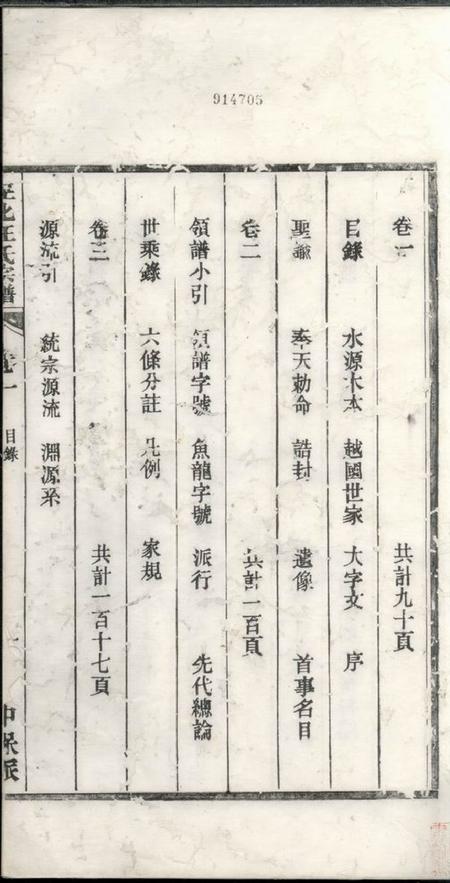 914705
卷一 共計九十頁
目錄 水源木本 越國世家 大字文 序
聖諭 奉天勅命 誥封 遺像 首事名目
卷二 共計一百頁
領譜小引 領譜字號 魚龍字號 派行 先代總論
世乘錄 六條分註 凡例 家規
卷三 共計一百十七頁
源流引 統宗源流 淵源系
汪氏宗譜 卷一 目錄